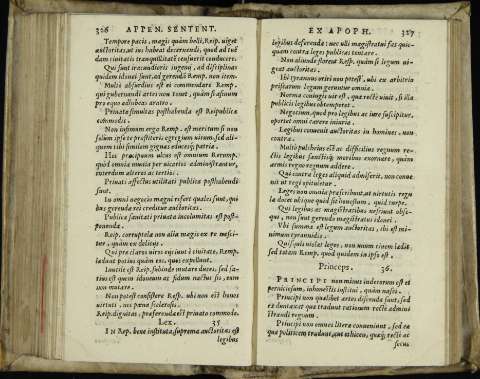 326 APPEN. SENTENT.
Tempore pacis, magis quàm belli, Reip. uiget
auctoritas, ut ius habeas decernendi, quod ad tuē
dam ciuitatis tranquillitatē censueris conducere.
Qui sunt iracundioris ingenij, ad disciplinas
quidem idonei sunt, ad gerendā Remp. non item.
Multò absurdius est ei commendare Remp.
qui gubernandi artem non tenet, quàm si asinum
pro equo adhibeas aratro.
Priuata similitas posthabenda est Reipublicæ
commodis.
Non infimum ergo Remp. est meritum si non
solùm ipse te præstiteris egregium uirum, sed ali-
quem tibi similem gignas educesq́; patriæ.
Hoc præcipuum ulcus est omnium Rerump.
quòd omnia munia per uicarios administrantur,
interdum alteros ac tertios.
Priuati affectus utilitati publicæ posthabendi
sunt.
In omni negocio magni refert quales sunt, qui
bus gerendæ rei creditur auctoritas.
Publicæ sanitati priuata incolumitas est post-
ponenda.
Reip. corruptela non alia magis ex re nasci-
tur, quàm ex delicijs.
Qui præclaros uiros eijciunt è ciuitate, Remp.
lædunt potius quàm eos, quos expellunt.
Inutile est Reip. subinde mutare duces, sed sa-
tius est quem idoneum ac fidum nactus sis, eum
non mutare.
Non potest consistere Resp. ubi non est honos
uirtuti, nec pœna sceleratis.
Reip. dignitas, præferenda est priuato commodo.
Lex. 35
IN Rep. bene instituta, suprema auctoritas est
legibus
EX APOPH. 327
legibus deferenda: nec ulli magistratui fas quic-
quam contra leges publicas tentare.
Non aliunde floret Resp. quàm si legum uí-
geat auctoritas.
Ibi tyrannus oriri non potest, ubi ex arbitrio
præscriptum legum geruntur omnia.
Norma coniugis uir est, quæ rectè uiuit, si illa
publicis legibus obtemperet.
Negotium, quod pro legibus ac iure suscipitur,
oportet omni carere iniuria.
Legibus conuenit auctoritas in homines, non
contra.
Multò pulchrius est ac difficilius regnum re-
ctis legibus sanctisq́; moribus exornare, quàm
armis regno regnum addere.
Qui contra leges aliquid admiserit, non conue
nit ut regi uituperetur.
Leges non omnia præscribunt, at uirtutis regu
la docet ubique quid sit honestum, quid turpe.
Qui legibus ac magistratibus nesciunt obse-
qui, non sunt gerendis magistratus idonei.
Vbi summa est legum auctoritas, ibi est mi-
nimum tyrannidis.
Quisquis uiolat leges, non unum ciuem lædit,
sed totam Remp. quod quidem in ipso est.
Princeps. 36.
PRINCIPI non minus indecorum est et
perniciosum, inhonestis institui, quàm nasci.
Principi non quælibet artes discendæ sunt, sed
ex duntaxat quæ tradunt rationem rectè admini
strandi regnum.
Principi non omnes literæ conueniunt, sed ea
quæ politicen tradunt, aut ethicen, quæq́; rectè ac
secus